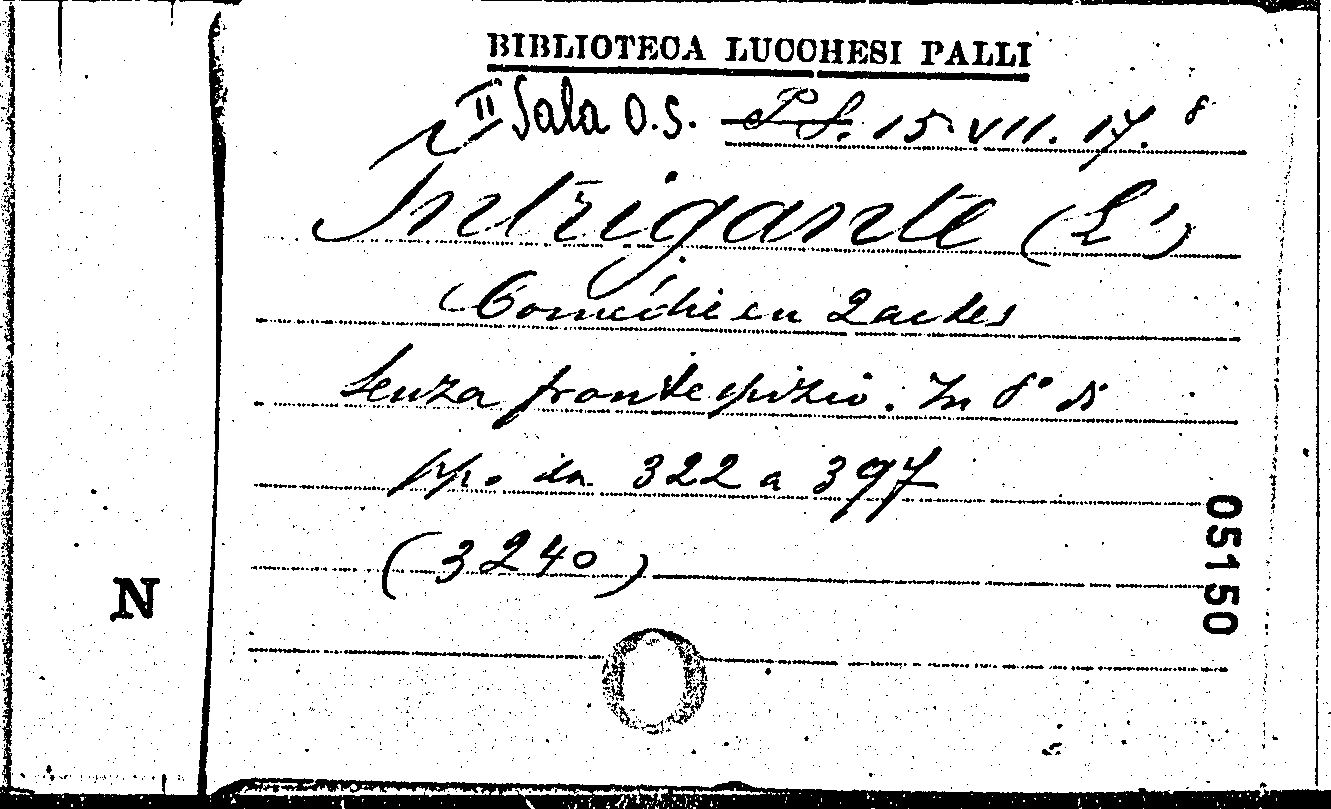 BIBLIOTECA LUCCHESI PALLI
II Sala O.S. P.S. 15. VII. 17.8
Intrigante (L')
Comédie en 2 actes
Senza frontespizio. In 8° di
pp. da 322 a 397
(3240)
05150
N